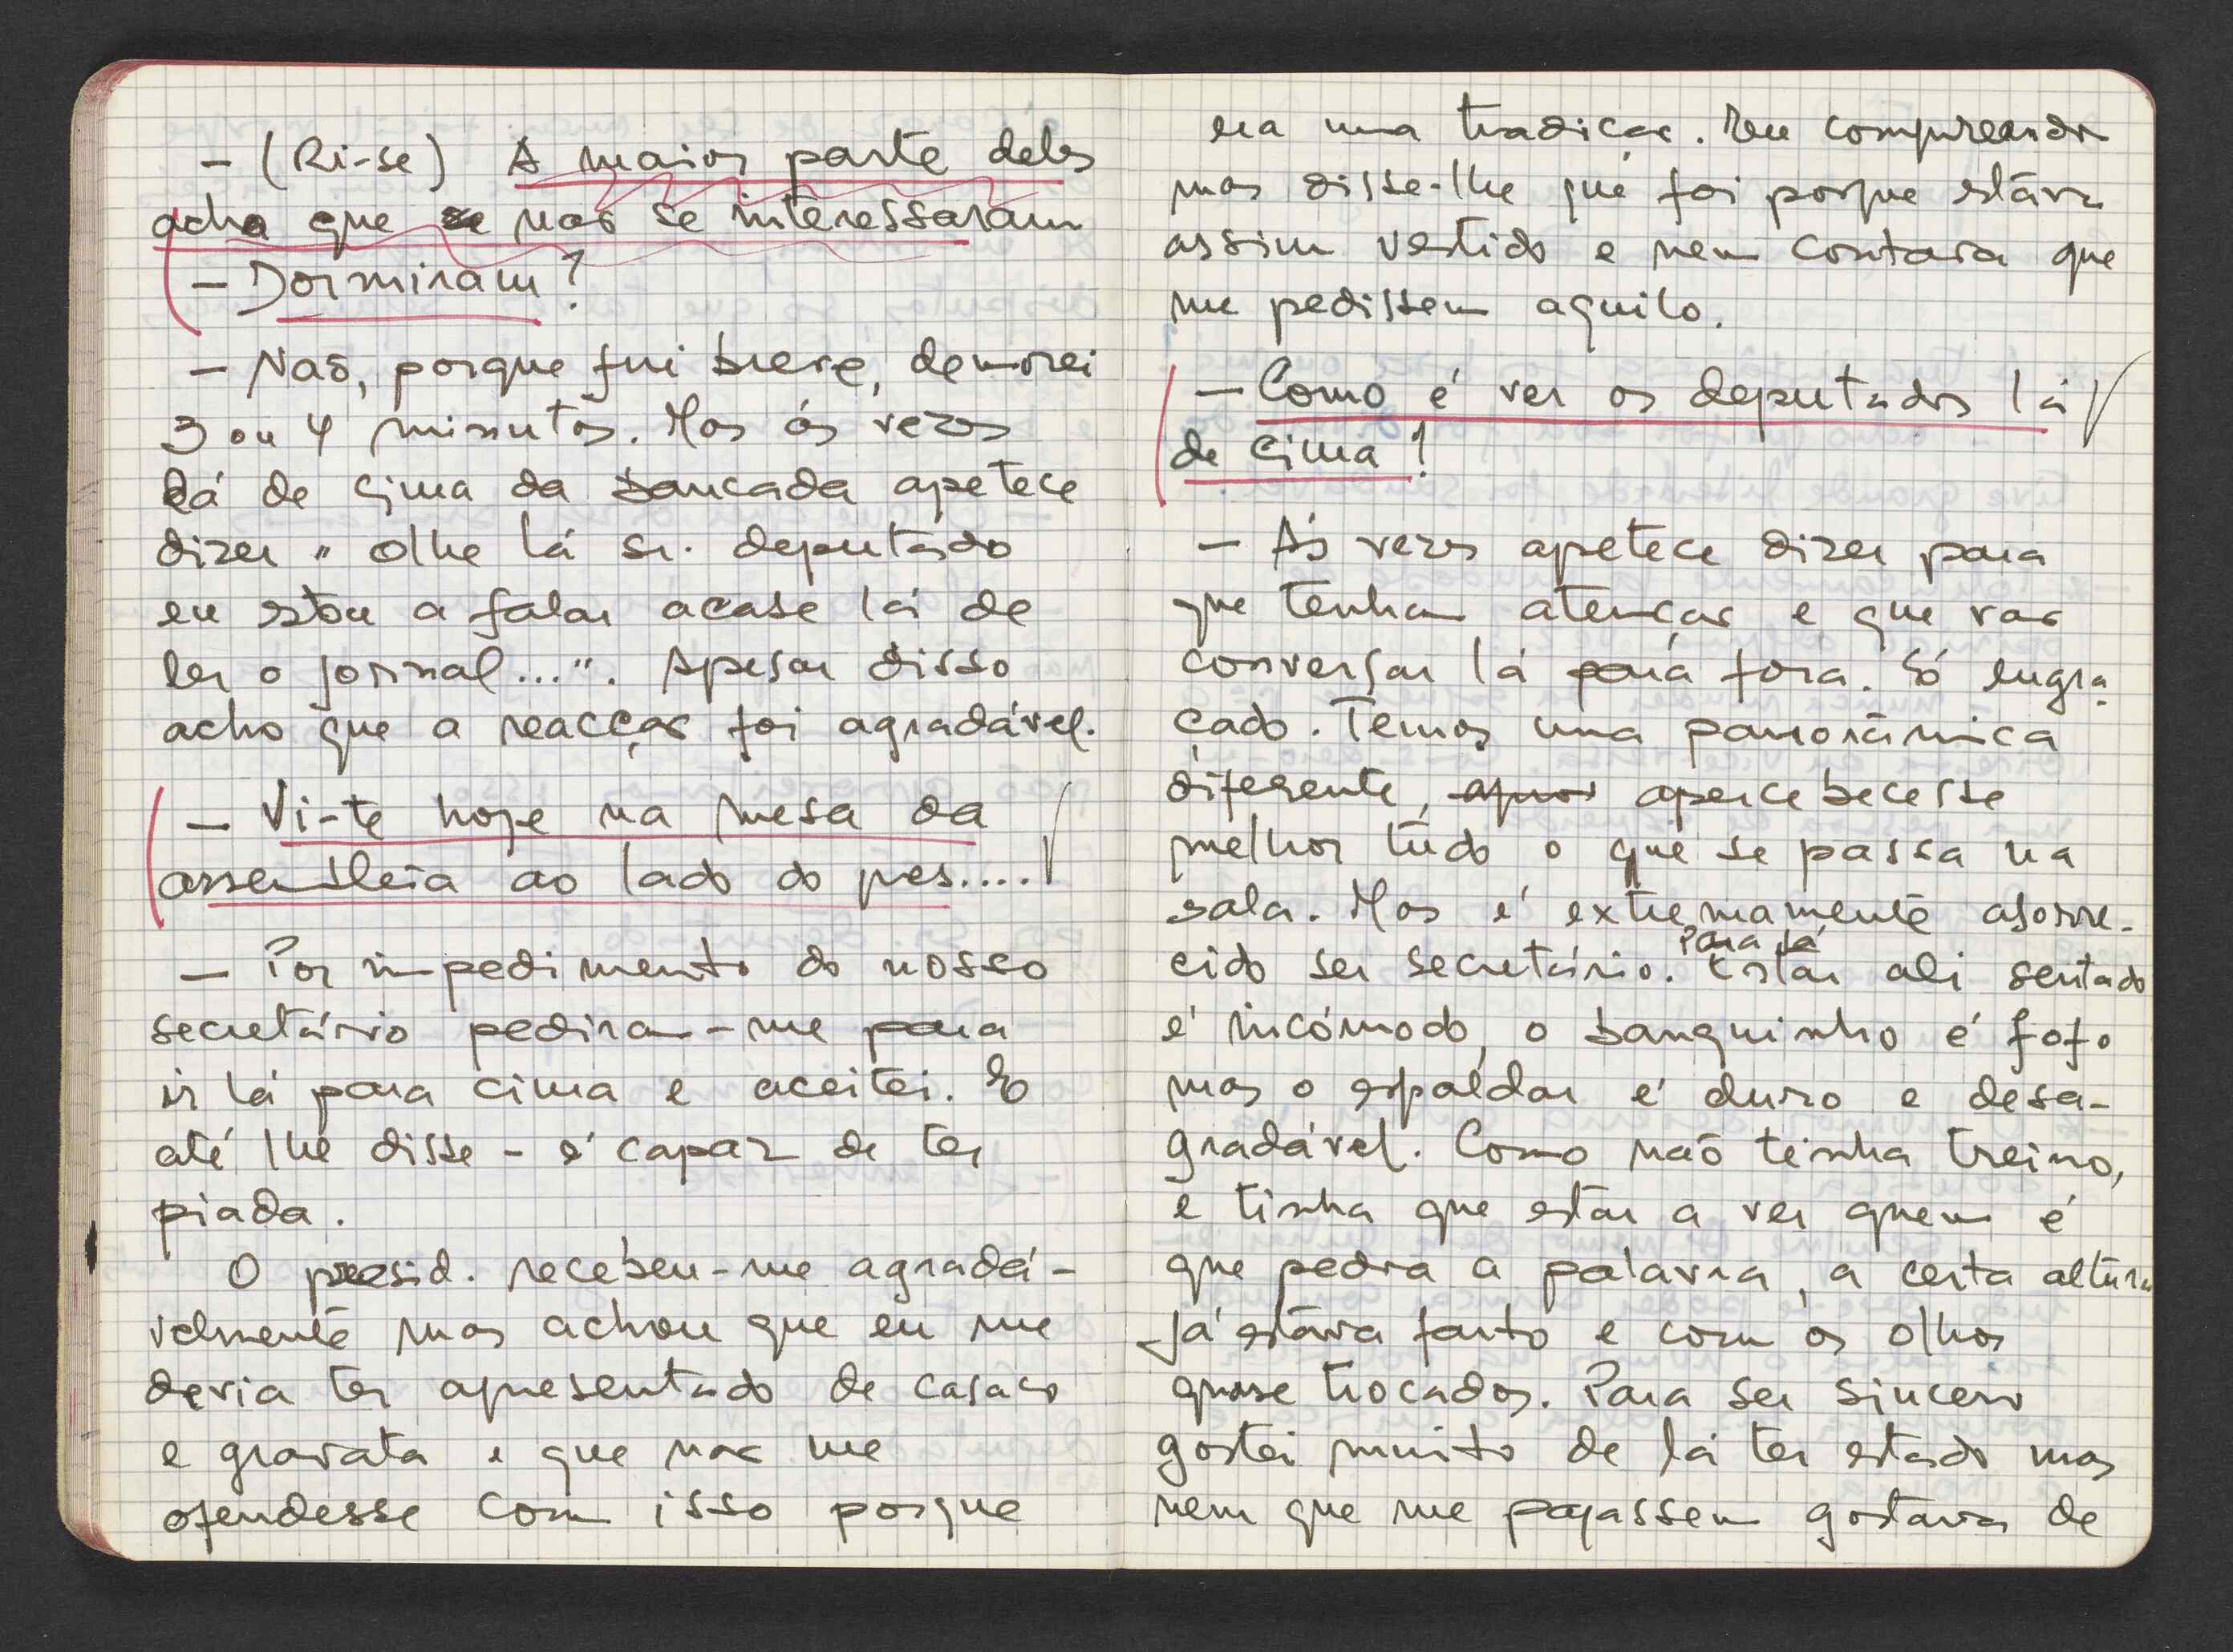 - (Ri-se) A maior parte deles
acha que se não se interessaram
- Dormiram?
- Não, porque fui breve, demorei
3 ou 4 minutos. Mas ás vezes
lá de cima da bancada apetece
dizer " olhe lá sr. deputado
eu estou a falar acase lá de
ler o jornal...". Apesar disso
acho que a reacção foi agradável.
- Vi-te hoje na mesa da
assembleia ao lado do pres....
- Por impedimento do nosso
secretário pediram-me para
ir lá para cima e aceitei. E
até lhe disse - é capaz de ter
piada.
O presid. recebeu-me agradá-
velmente mas achou que eu me
devia ter apresentado de casaco
e gravata e que não me
ofendesse com isso porque
era uma tradição. Eu compreendo
mas disse-lhe que foi porque estava
assim vestido e nem contava que
me pedissem aquilo.
- Como é ver os deputados lá
de cima?
- Ás vezes apetece dizer para
que tenham atenção e que vão
conversar lá para fora. É engra-
çado. Temos uma panorâmica
diferente, apercebecesse
melhor tudo o que se passa na
sala. Mas é extremamente aborre-
cido ser secretário. Para já Estar ali sentado
é incómodo, o banquinho é fofo
mas o espaldar é duro e desa-
gradável. Como não tinha treino,
e tinha que estar a ver quem é
que pedia a palavra, a certa altura
já estava farto e com os olhos
quase trocados. Para ser sincero
gostei muito de lá ter estado mas
nem que me pagassem gostava de